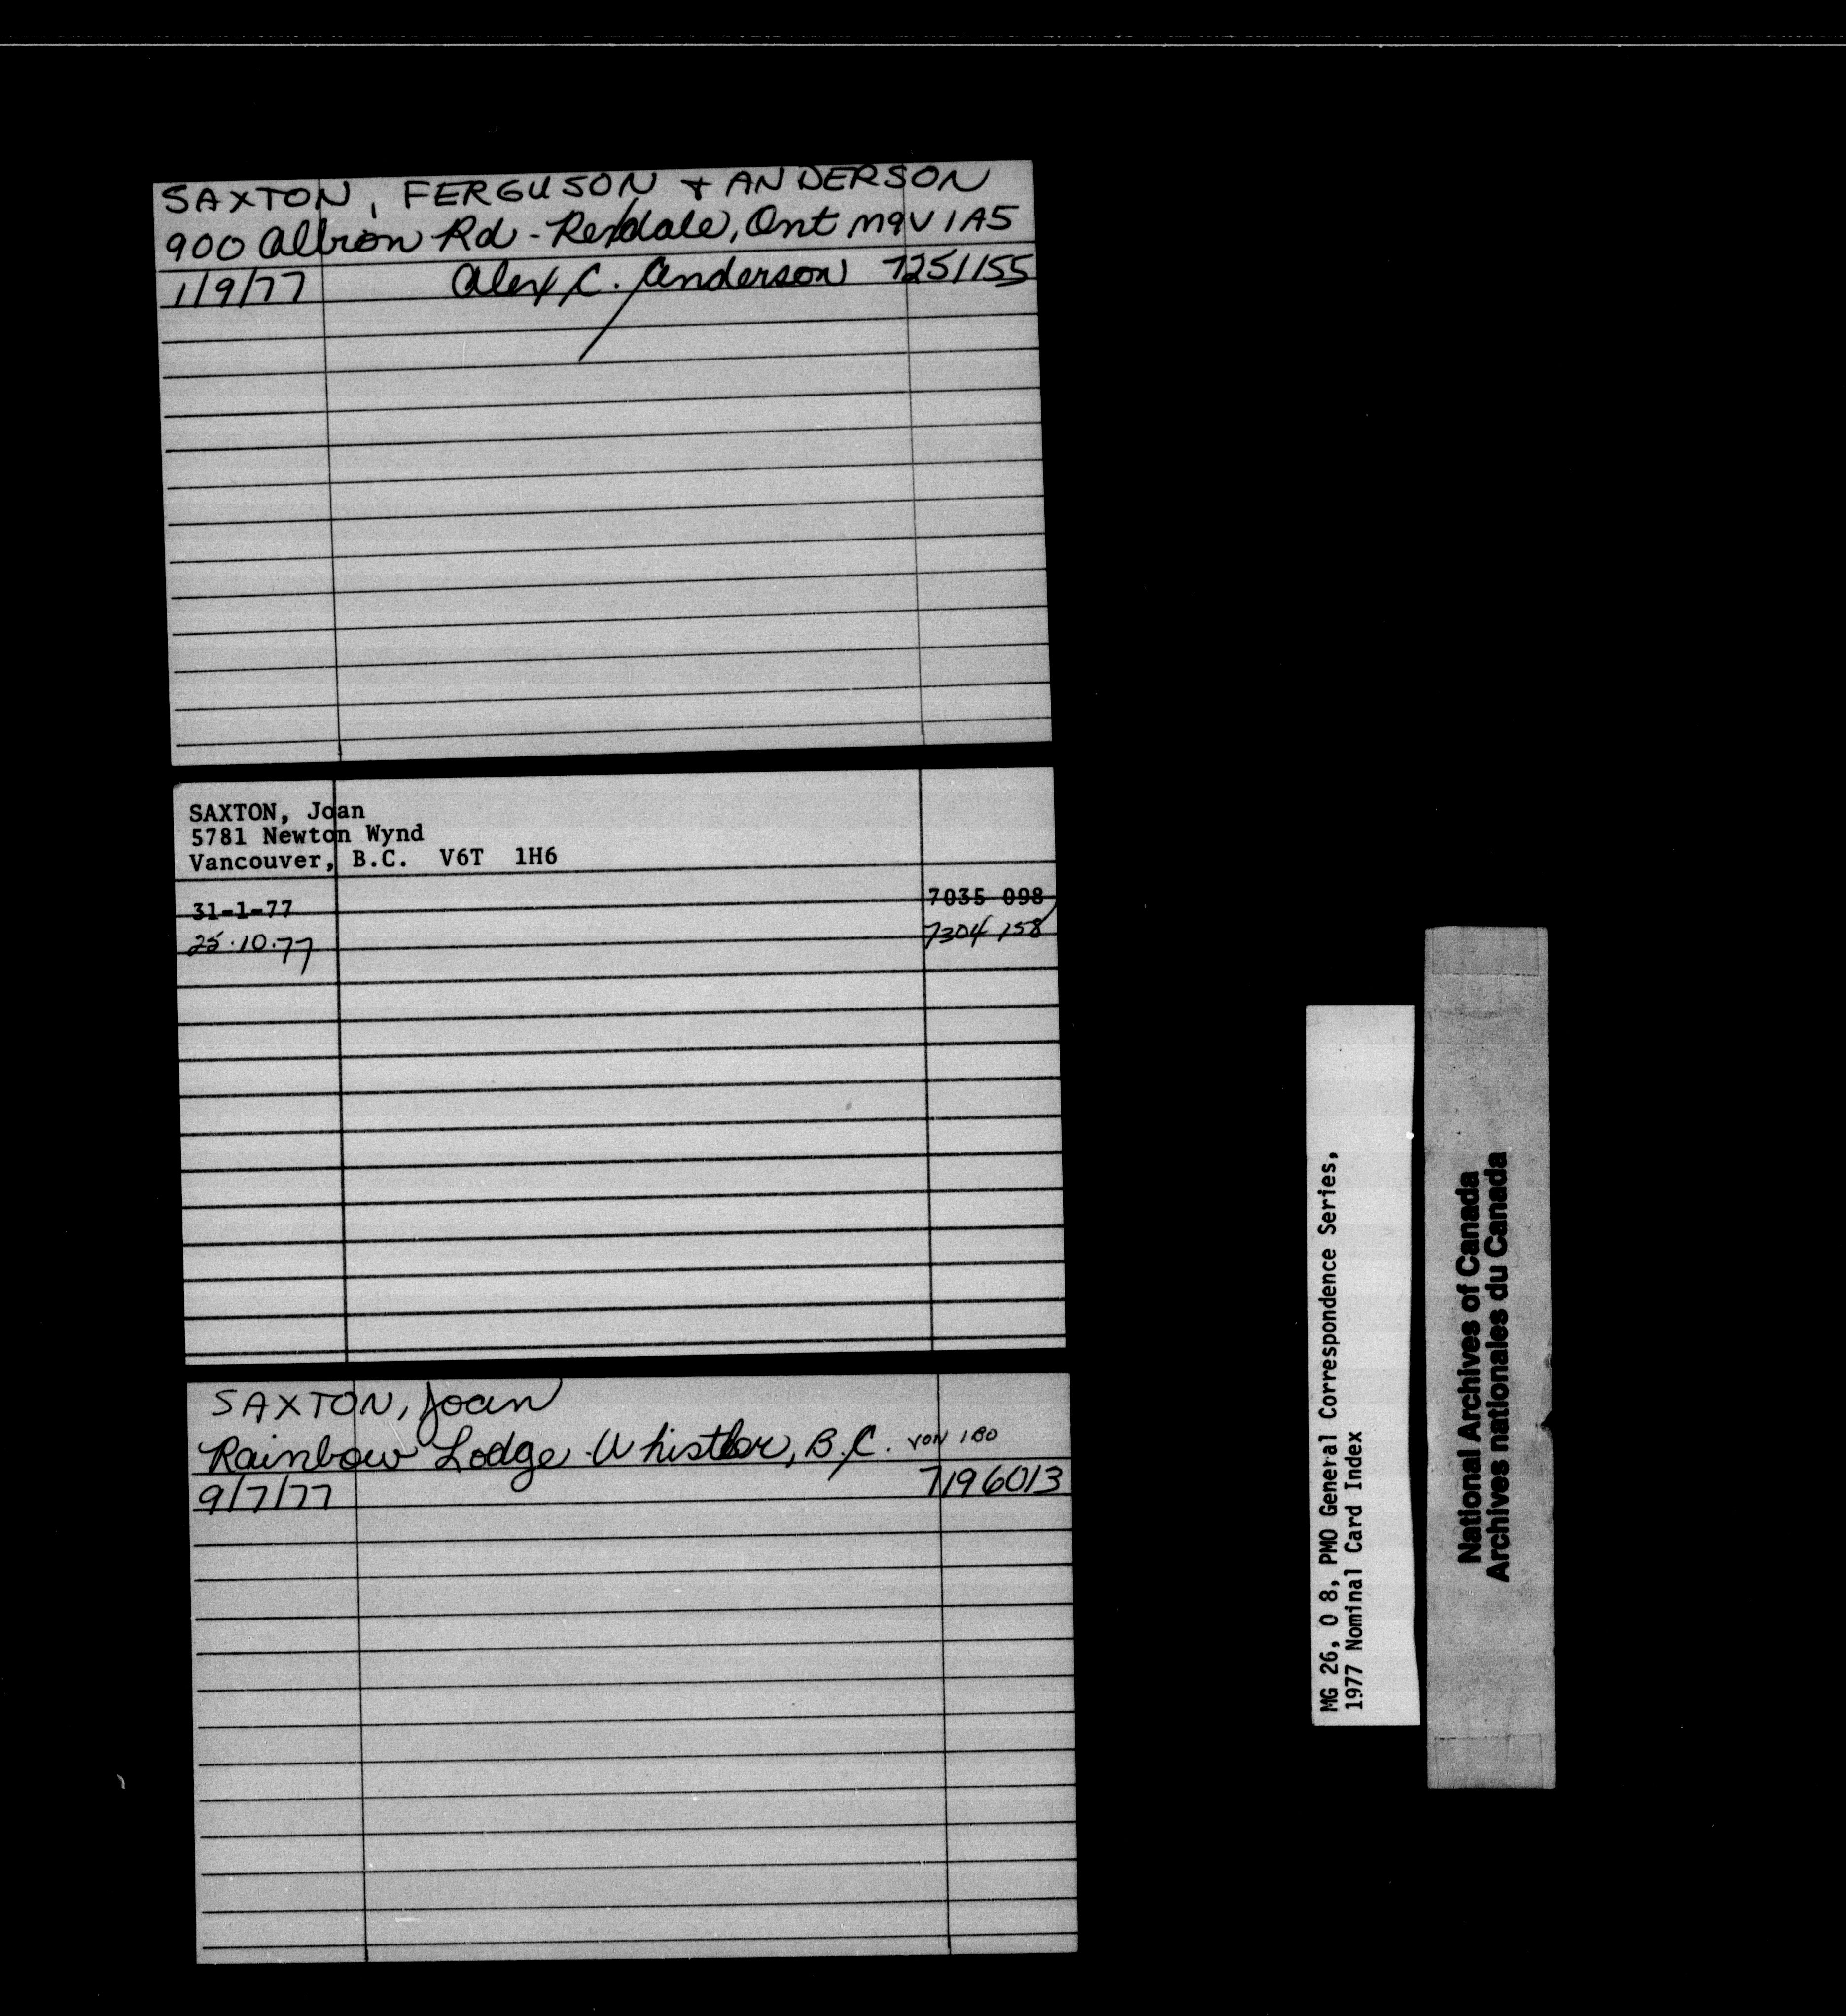 SAXTON, FERGUSON + ANDERSON
900 Albion Rd - Rexdale, Ont M9V 1A5
1/9/77 Alex C. Anderson 7251155
SAXTON, Joan
5781 Newton Wynd
Vancouver, B.C. V6T 1H6
31-1-77 7035 098
25.10.77 7304 158
SAXTON, Joan
Rainbow Lodge - Whistler, B.C. V0N 1B0
9/7/77 7196013
MG 26, O 8, PMO General Correspondence Series,
1977 Nominal Card Index
National Archives of Canada
Archives nationales du Canada